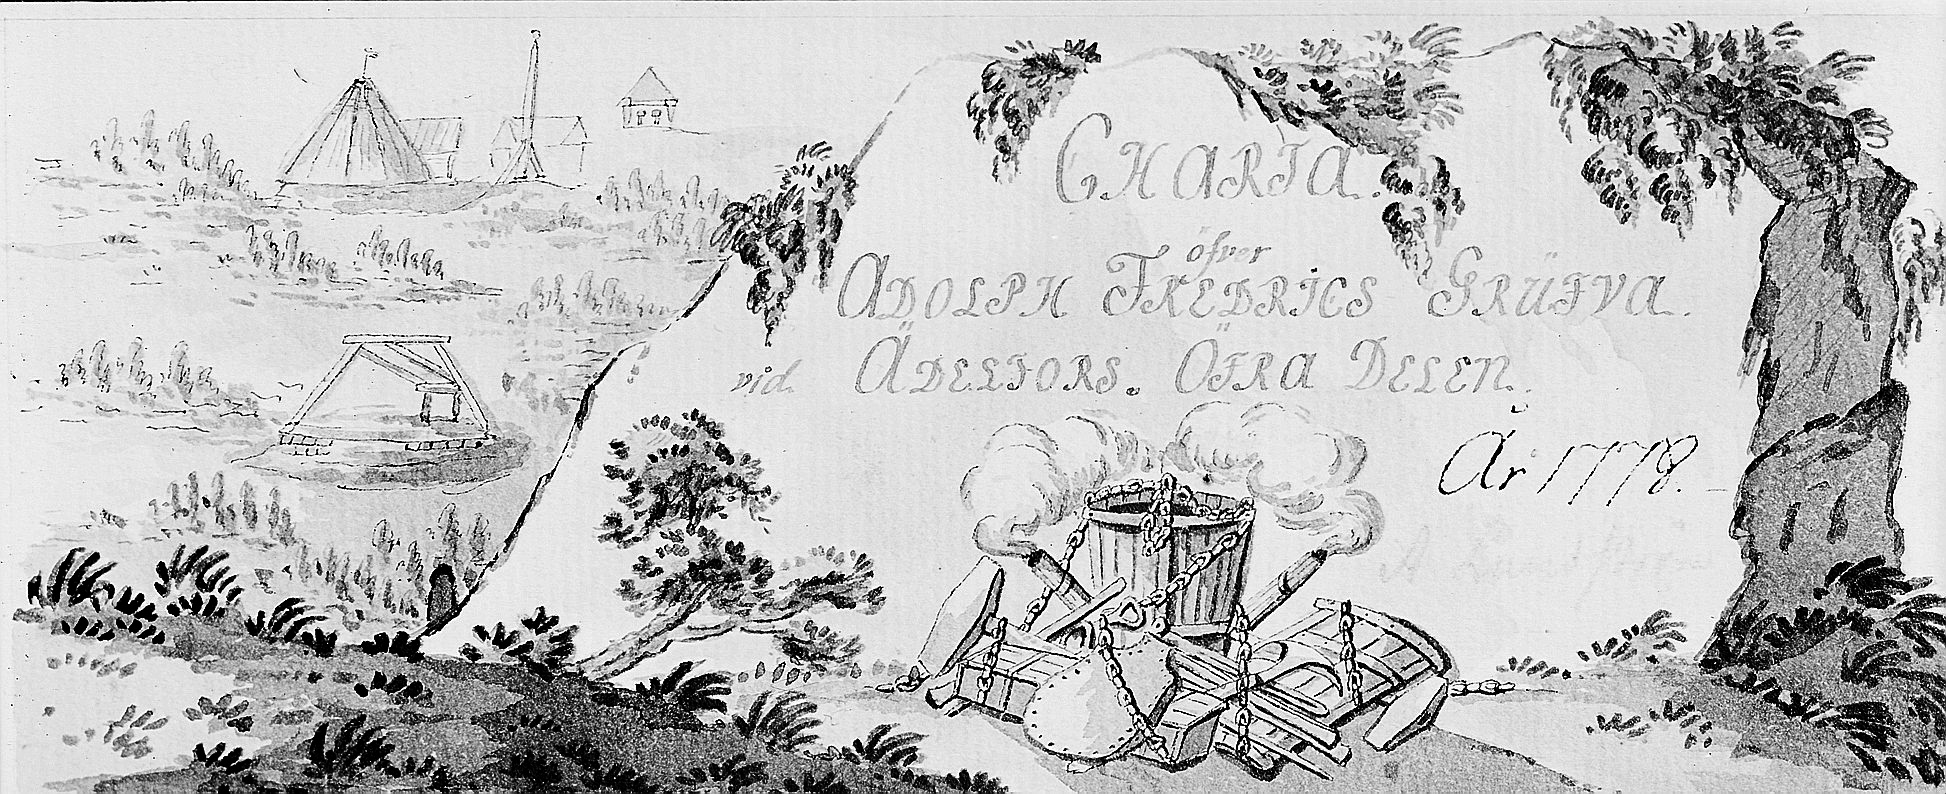 CHARTA.
öfver
ADOLPH FREDRICS GRÜFVA.
vid ÄDELFORS. ÖFRA DELEN.
År 1778.